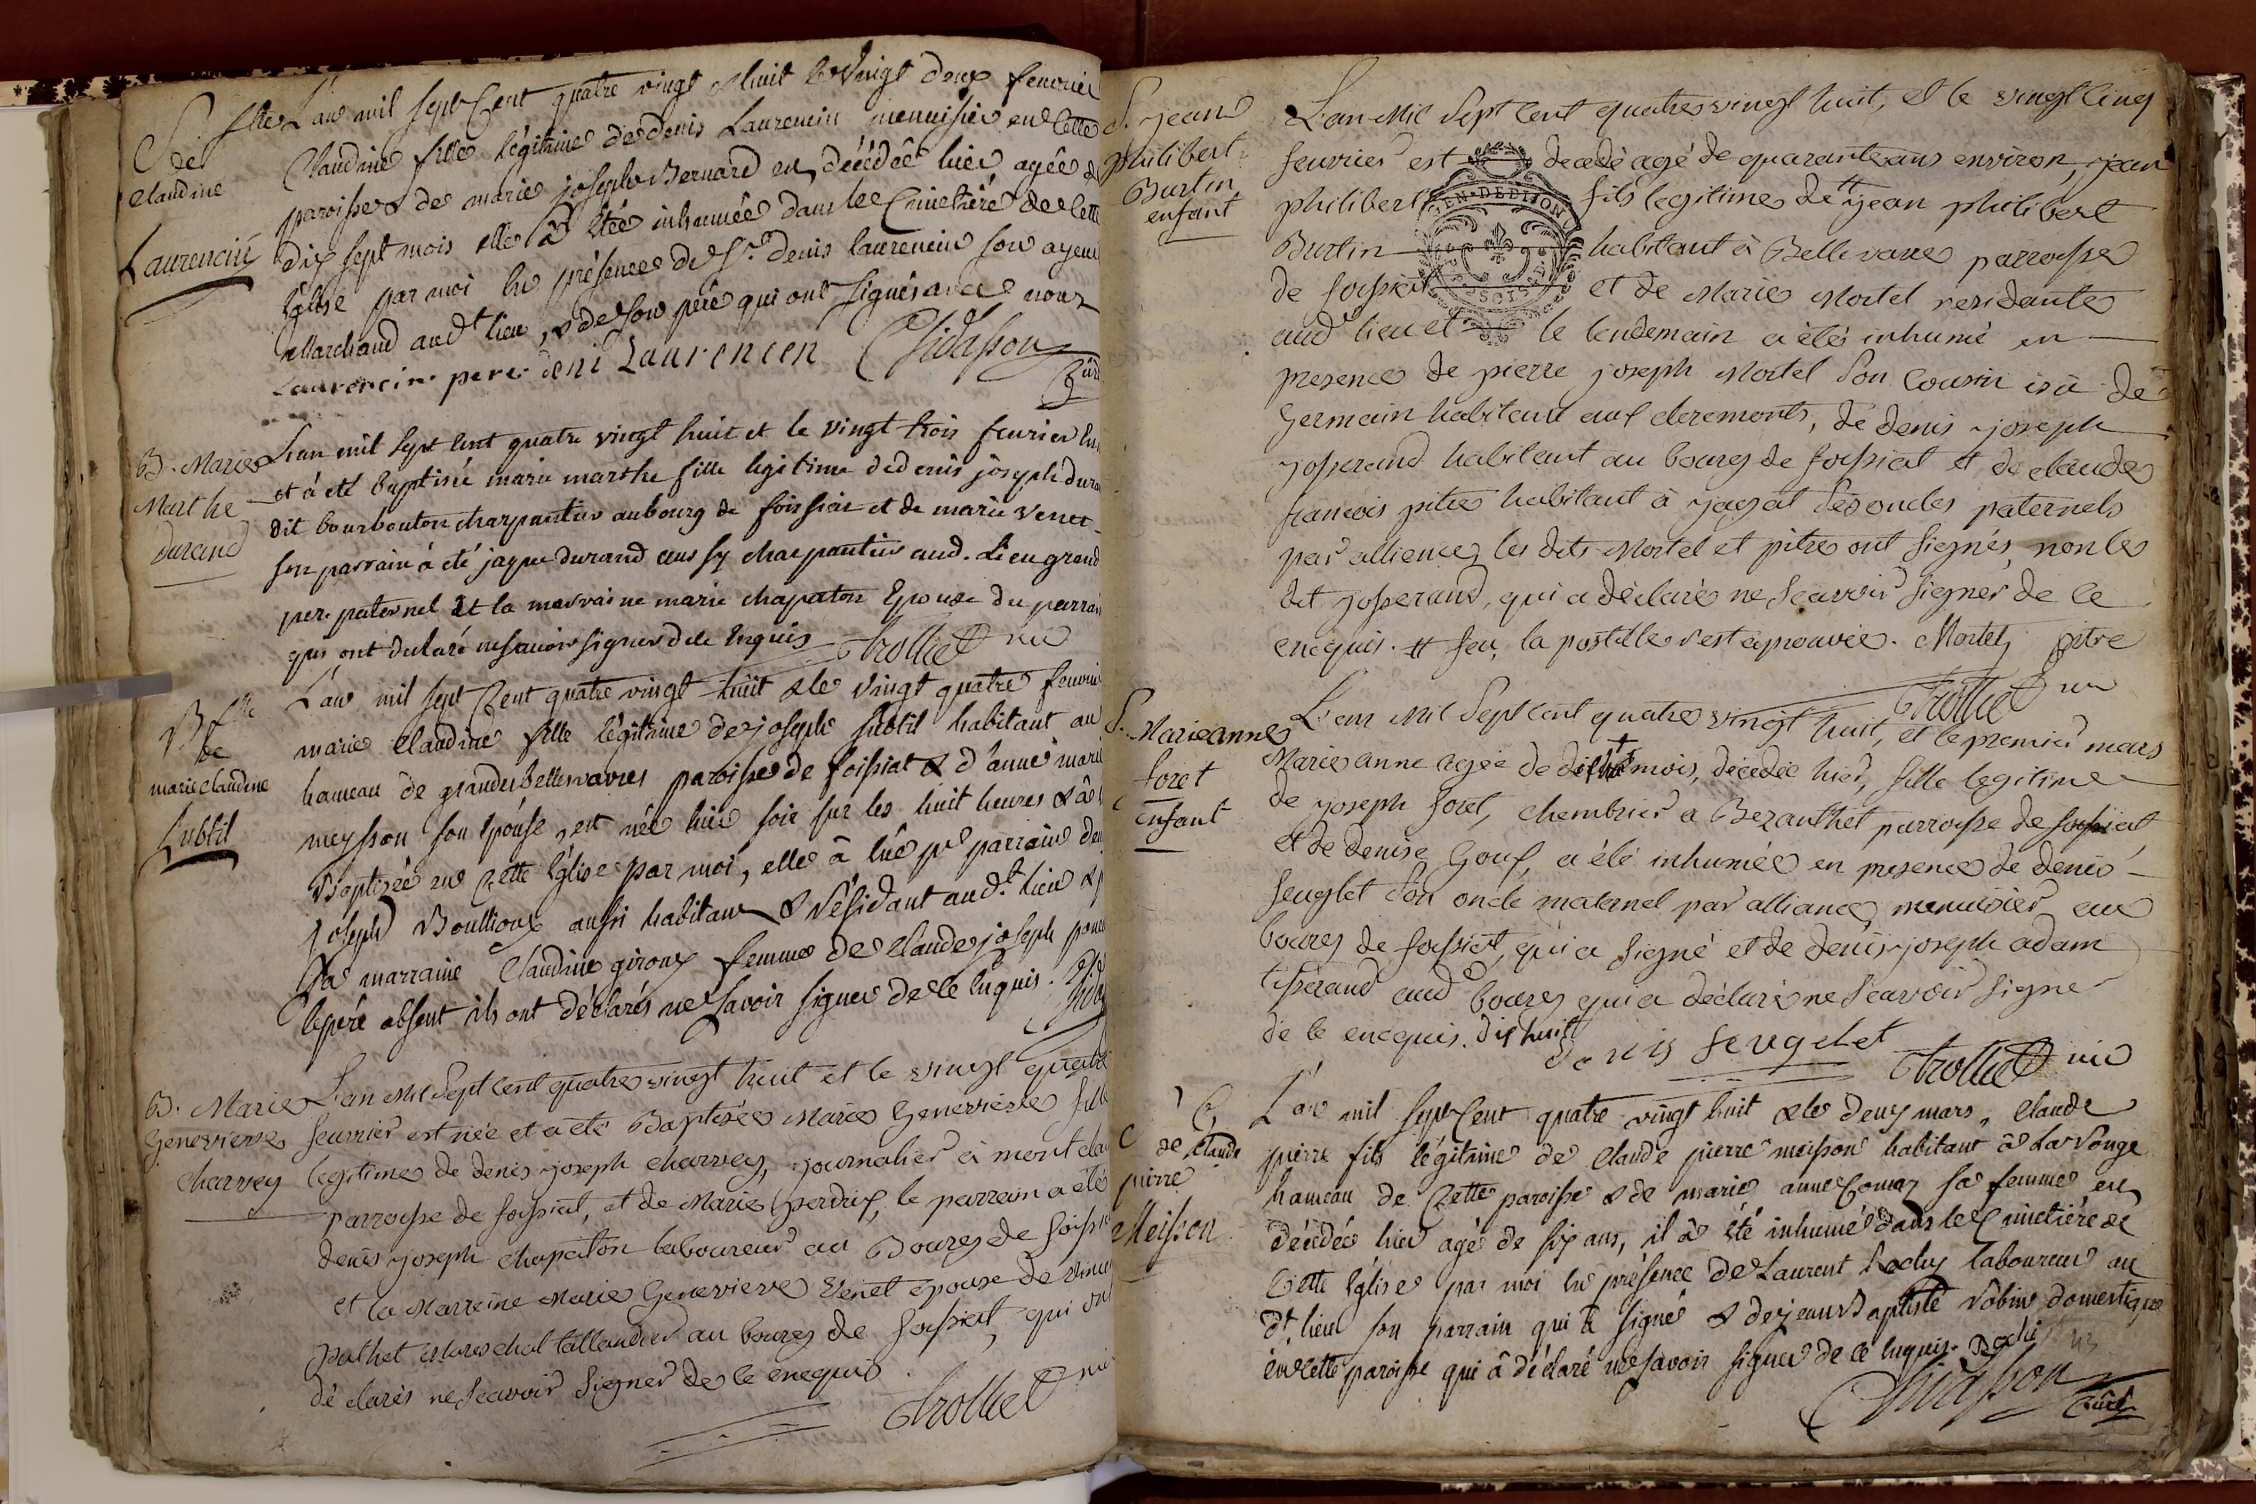 S. fille
de
Claudine
Laurencin
L'an mil sept Cent quatre vingt & huit & le Vingt deux fevrier
Claudine fille légitime de denis Laurencin menuisier en Cette
paroisse & de marie joseph Bernard est décédée hier agée de
dix sept mois elle â étée inhumée dans le Cimetiére de Cette
Eglise par moi En présence de Sr. denis laurencin son ayeul
Marchand aud.t lieu, & de son pére qui ont signés avec nous
Laurencin pere deni Laurencen Chidasson
B. Marie
Marthe
Durand
L'an mil sept cent quatre vingt huit et le vingt trois fevrier
et à eté baptisée marie marthe fille legitime de denis joseph
dit bourbouton charpantier au bourg de foissiat et de marie Venet
son parrain à eté jaque durand aussy charpantier aud. Lieu grand
pere paternel et la marraine marie chapaton Epouse du parrain
qui ont declaré ne sçavoir signer de ce Enquis Trolliet vic
B. fille
de
marie claudine
Subtil
L'an mil sept Cent quatre vingt huit & le Vingt quatre fevrier
marie Claudine fille légitime de joseph subtil habitant au
hameau de grande bellevavres paroisse de foissiat & d'anne marie
meysson son Epouse, est née hier soir sur les huit heures & â
Baptisée en Cette Eglise par moi, elle â Eüe pr. parrain
joseph Boullioux aussi habitant & Résidant aud.t lieu &
sa marraine Claudine giroux femme de Claude joseph
le pére absent ils ont déclarés ne Savoir signer de Ce Enquis.
B. Marie
Genevieve
Charvey
L'an Mil Sept cent quatre vingt huit et le vingt quatre
feuvrier est née et a eté Baptisée Marie Genevieve fille
legitime de denis joseph charvey, journalier à
parroisse de foissiat, et de Marie perdrix, le parrain a été
denis joseph chapaton laboureur au Bourg de foissiat
et la Marreine Marie Genevieve Venet epouse de
pathet Mareschal taillandier au bourg de foissiat, qui ont
declarés ne Sçavoir Signer de ce enequis
Trolliet
S. jean
philibert
Burtin
enfant
L'an Mil Sept cent quatre vingt huit, et le vingt cinq
feuvrier est decedé agé de quarante ans environ, jean
philibert fils legitime de # jean philibert
Burtin habitant à Bellevavre parroisse
de foissiat et de Marie Mortel residante
aud lieu et le lendemain a été inhumé en
presence de pierre joseph Mortel Son Cousin issü de
Germain habitant aux claremonts, de denis joseph
josserand habitant au bourg de foissiat et de claude
francois pitre habitant à jayat Ses oncles paternels
par allience, les dits Mortel et pitre ont signés, non le
dit josserand, qui a déclaré ne Sçavoir Signer de ce
enequis. # feu, la postille s'est aprouvée. Mortel pitre
Trolliet vic
S. Marie anne
foret
enfant
L'an Mil Sept cent quatre vingt huit, et le premier mars
Marie anne agée de mois, decedée hier, fille legitime
de joseph foret, chembrier a Bezanthet parroisse de foissiat
et de denise Goux, a été inhumée en presence de denis
feuglet Son oncle maternel par alliance, menuisier au
bourg de foissiat, qui a Signé et de denis joseph adam
tisserand aud bourg qui a déclaré ne Sçavoir signe
de ce enequis. dix huit
denis feugelet Trolliet vic
S.
de Claude
pierre
Meisson
L'an mil sept Cent quatre vingt huit & le deux mars, Claude
pierre fils légitime de Claude pierre meisson habitant â La Vouge
hameau de Cette paroisse & de marie anne Comas sa femme est
décédée hier agé de six ans, il â été inhumé dans le Cimetiére de
Cette Eglise par moi En présence de Laurent Rochy laboureur au
dt. lieu son parrain qui â signé & de jean Baptiste Robin domestique
en Cette paroisse qui â déclaré ne Savoir signer de ce Enquis. Rochi
Chidasson
Curé